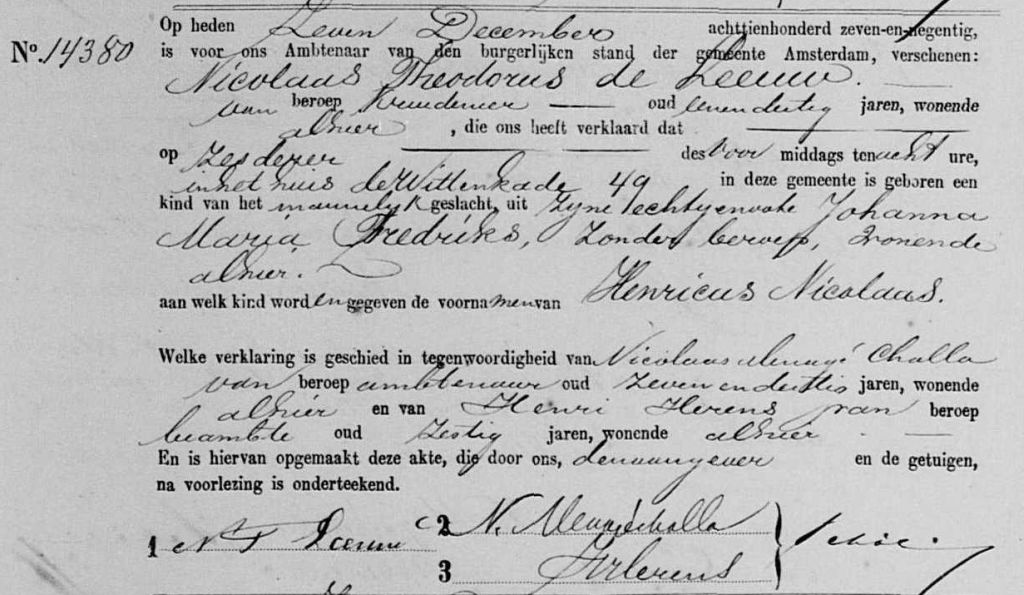 Op heden Zeven December achttienhonderd zeven-en-negentig,
No. 14380 is voor ons Ambtenaar van den burgerlijken stand der gemeente Amsterdam, verschenen:
Nicolaas Theodorus de Leeuw.
van beroep Kruidenier oud jaren, wonende
alhier, die ons heeft verklaard dat
op Zes dezer des voor middags ten acht ure,
in het huis de Wittenkade 49 in deze gemeente is geboren een
kind van het mannelijk geslacht, uit Zyne echtgenoote Johanna
Maria Fredriks, Zonder beroep, Wonende
alhier.
aan welk kind worden gegeven de voornamen van Henricus Nicolaas.
Welke verklaring is geschied in tegenwoordigheid van Nicolaas Menagé Challa
van beroep ambtenaar oud Zeven en dertig jaren, wonende
alhier en van Henri Herens van beroep
beambte oud Zestig jaren, wonende alhier.
En is hiervan opgemaakt deze akte, die door ons, den aangever en de getuigen,
na voorlezing is onderteekend.
1 N T Leeuw 2 N. Menagé Challa
3 Herens